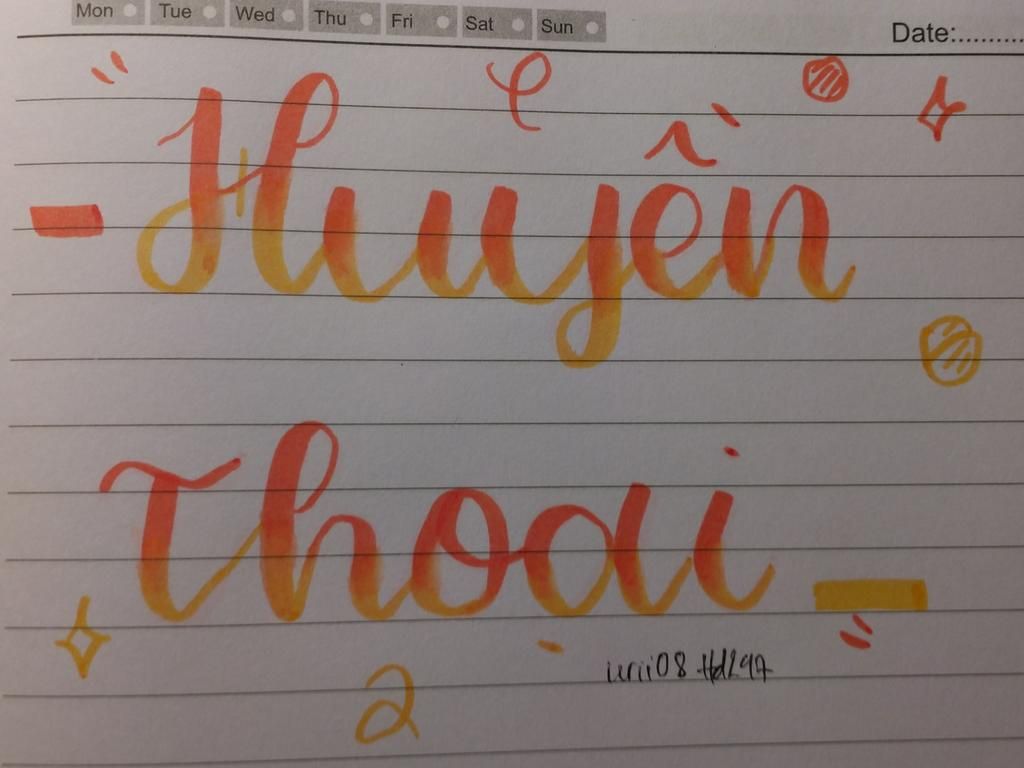 Mon Tue Wed Thu Fri Sat Sun Date:.........
Huyền
Thoại
2
urii08 #d297